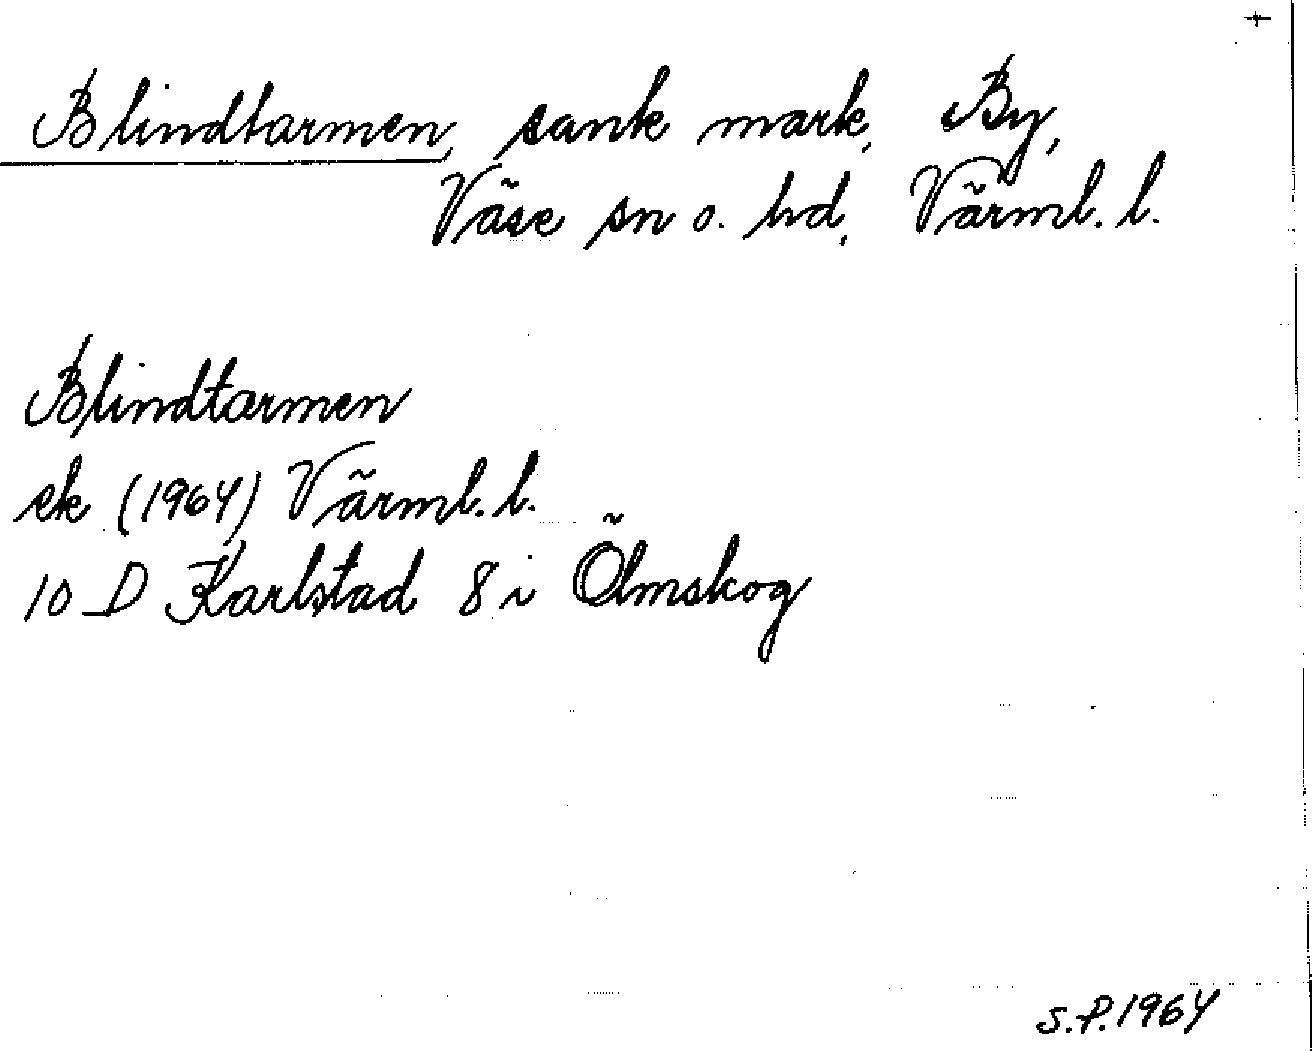 Blindtarmen, sank mark, By,
Väse sn o. hd, Värml. l.
Blindtarmen
ek (1964) Värml. l.
10 D Karlstad 8 i Ölmskog
S.P. 1964